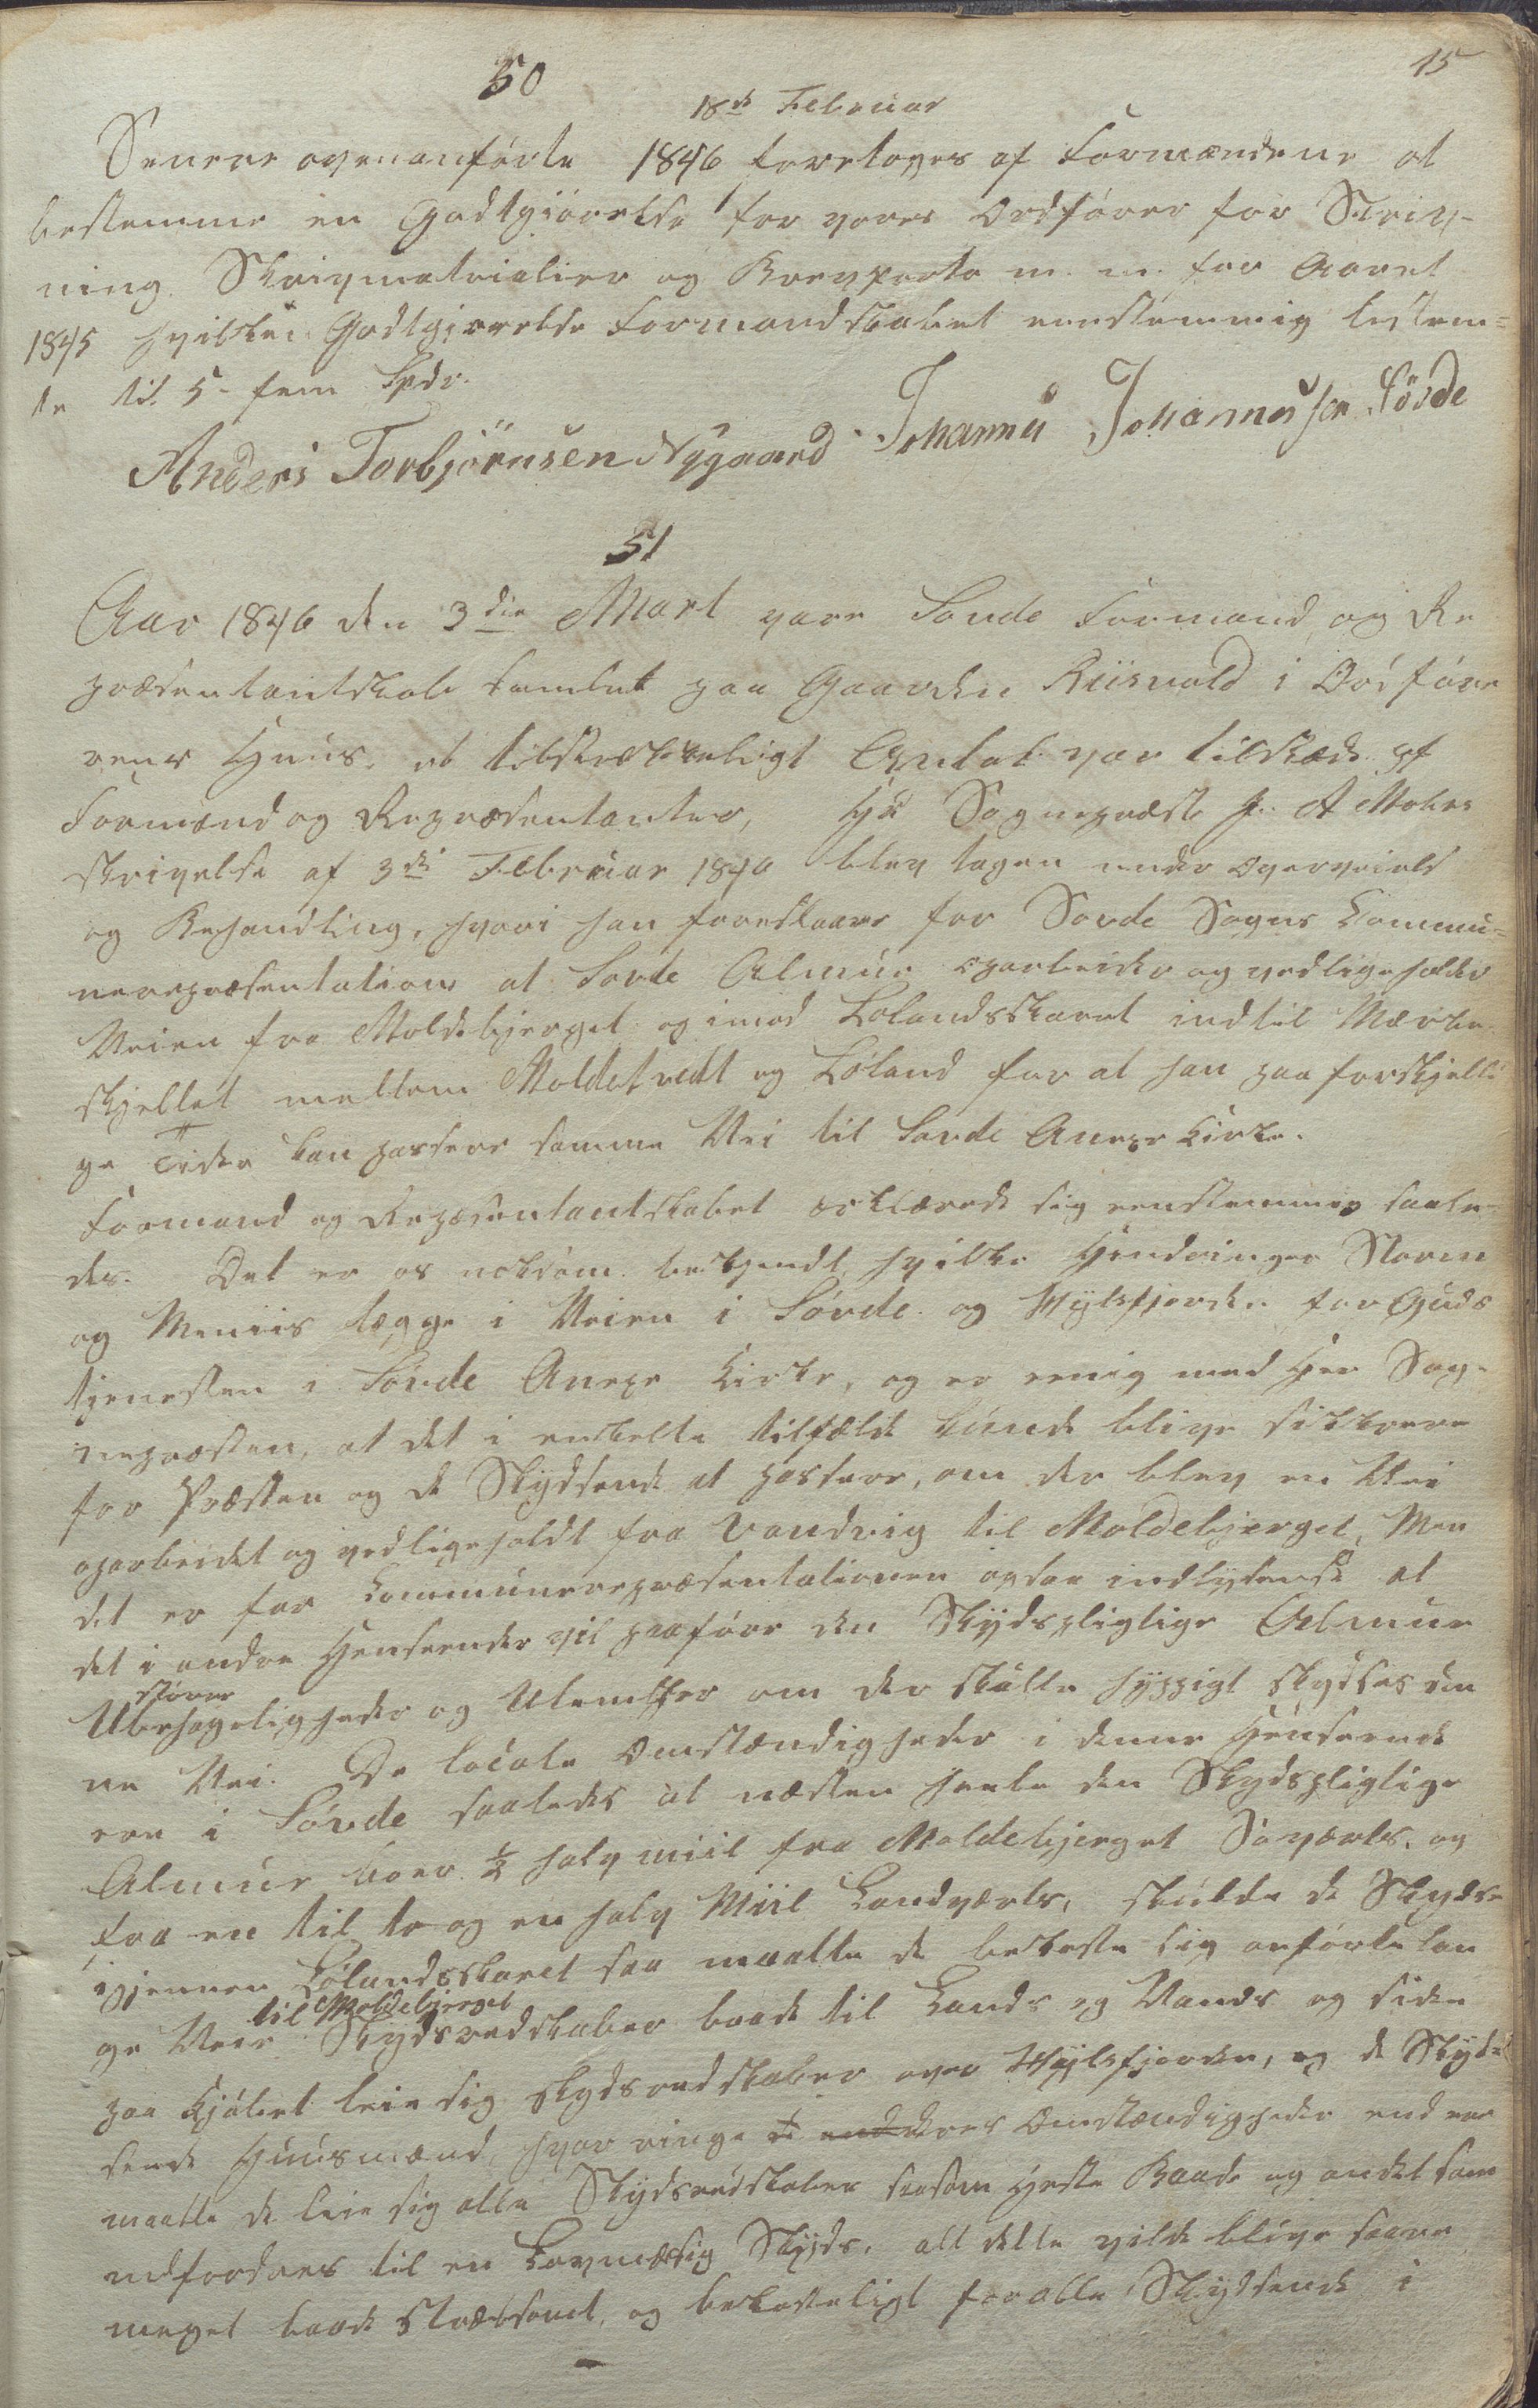 15
50
18de Februar
Senere ovenanførte 1846 foretoges af Formændene at
bestemme en Godtgjörelse for vores Ordfører for Skriv-
ning. Skrivmatrialier og Brevporto m. m. for Aaret
1845 hvilken Godtgjørelse Formandskabet eenstemmig bestem=
te til 5 - fem Spdr.
Anders Torbjörnsen Nygaard Johannes Johannessen Sövde
51
Aar 1846 den 3die Mart vare Sovde Formand og Re
præsentantskab samlet paa Gaarden Riisvold i Ordföre
rens Huus. et tilstrækkeligt Antal var tilstæde af
Formænd og Repræsentanter, Hr Sognepræst J. A Mohrs
skrivelse af 3die Februar 1840 blev tagen under Overveielse
og Behandling, hvori han foreslaaer for Sovde Sogns Commu=
nerepræsentation at Sovde Almue oparbeider og vedligeholder
Veien fra Moldebjerget og imod Lølandsskaret indtil Mærke-
skjellet mellem Moldetvedt og Løland for at han paa forskjelli
ge Tider kan passere samme Vei til Sovde Anexe Kirke.
Formand og Repæsentantskabet erklærede sig eenstemmig saale-
des. Det er os noksom bekjendt hvilke Hindringer Storm
og Meniis lægge i Veien i Sövde og Hÿlsfjorden for Guds
tjenesten i Sövde Anexe Kirke, og er eenig med Her Sog-
nepræsten, at det i enkelte tilfælde kunde blive sikkrere
for Præsten og de Skydsende at passere, om der blev en Vei
oparbeidet og vedligeholdt fra Vandvig til Moldebjerget, Men
det er for Communerepræsentationen ogsaa indlysende at
det i andre Henseender vil paaföre den Skÿdspligtige Almue
større
Ubehageligheder og Ulemper om der skulle hÿppigt skydses den
ne Vei. De locale Omstændigheder i denne Henseende
ere i Sövde saaledes at næsten heele den Skydspligtige
Almue boer ½ halv miil fra Moldebjerget Søværts. og
fra en til to og en halv Miil Landværts, skulde de Skydse
igjennem Lølandsskaret saa maatte de bekoste sig anførte lan
til Moldebjerget
ge Veie Skydsredskaber baade til Lands og Vands og siden
paa Kjøbet leie sig skydsredskaber over Hÿlsfjorden, og de Skyd-
sende Huusmænd, hvor ringe deres Omstændigheder end ere
maatte de leie sig alle Skydsredskaber saasom Heste Baade og andet som
udfordres til en Lovmæssig Skÿds. alt dette vilde blive saare
meget baade stræbsomt, og bekosteligt for alle Skydsende i